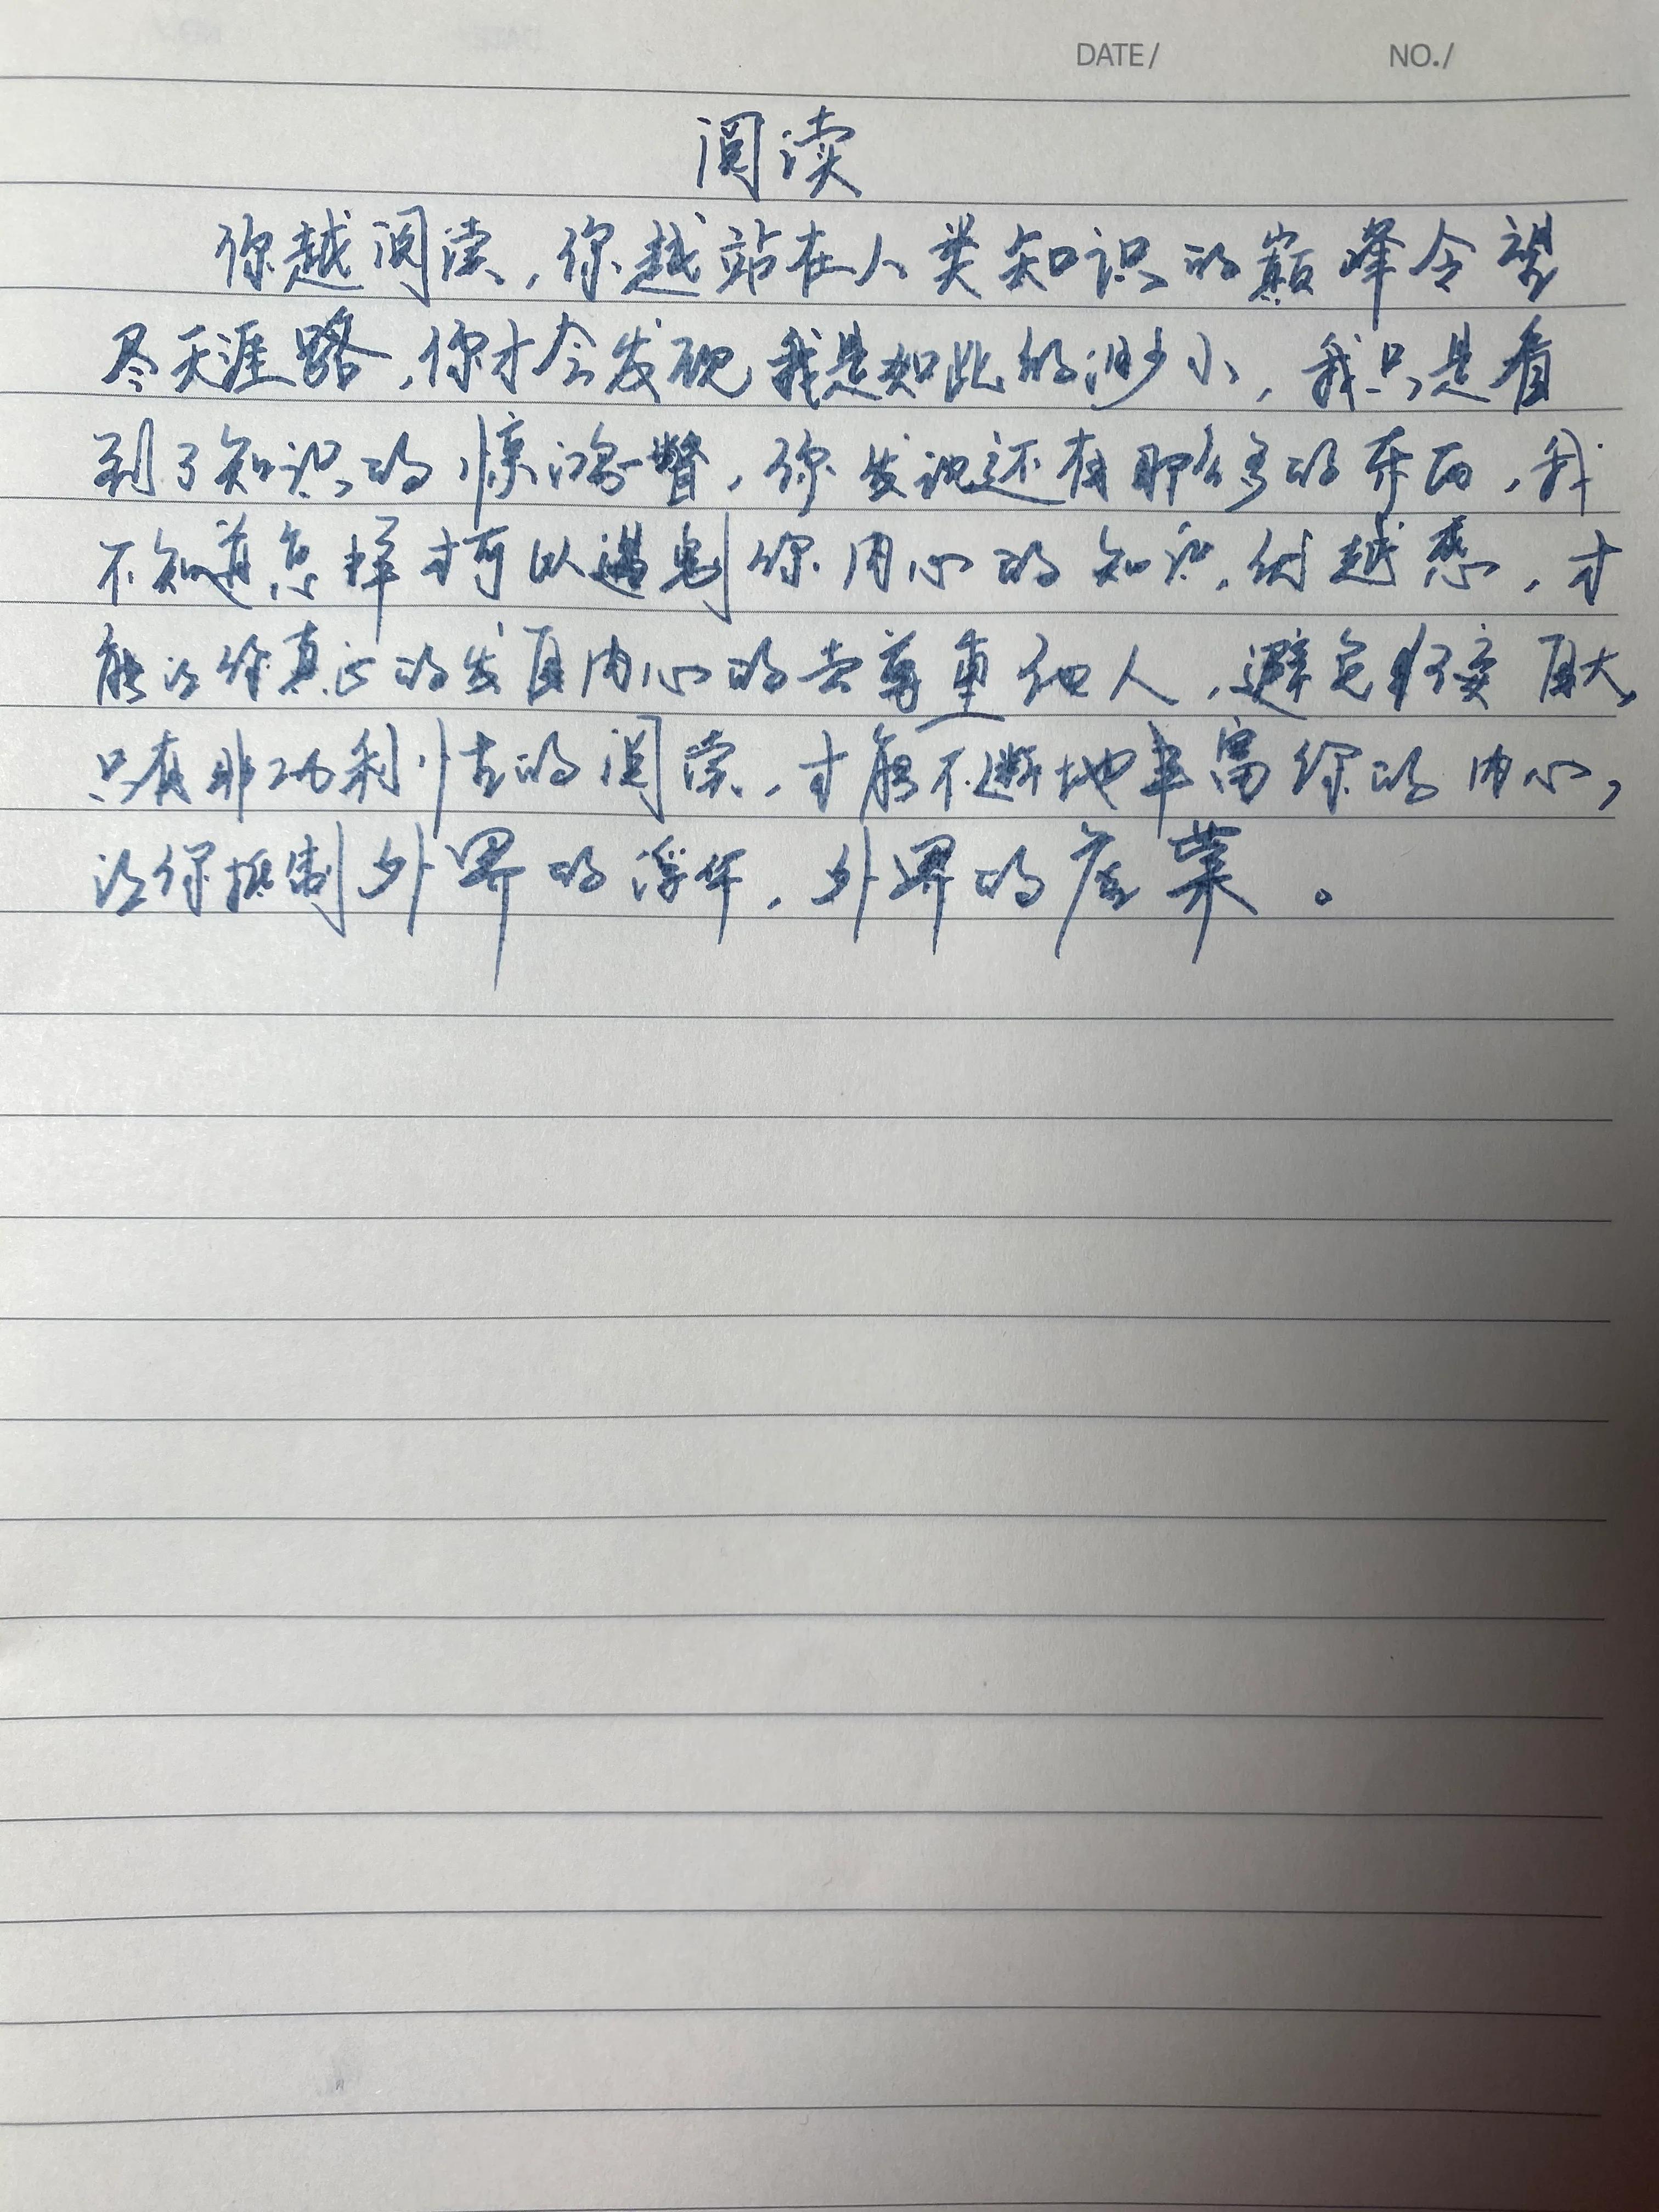 DATE/ NO./
阅读
你越阅读,你越站在人类知识的巅峰令望
尽天涯路,你才会发现我是如此的渺小,我只是看
到了知识的惊鸿一瞥,你发现还有那么多的东西,我
不知道怎样才可以遇到你内心的知识,
能让你真正的发自内心的去尊重他人,避免狂妄自大,
只有非功利性的阅读,才能不断地丰富你的内心,
让你抵制外界的浮华,外界的